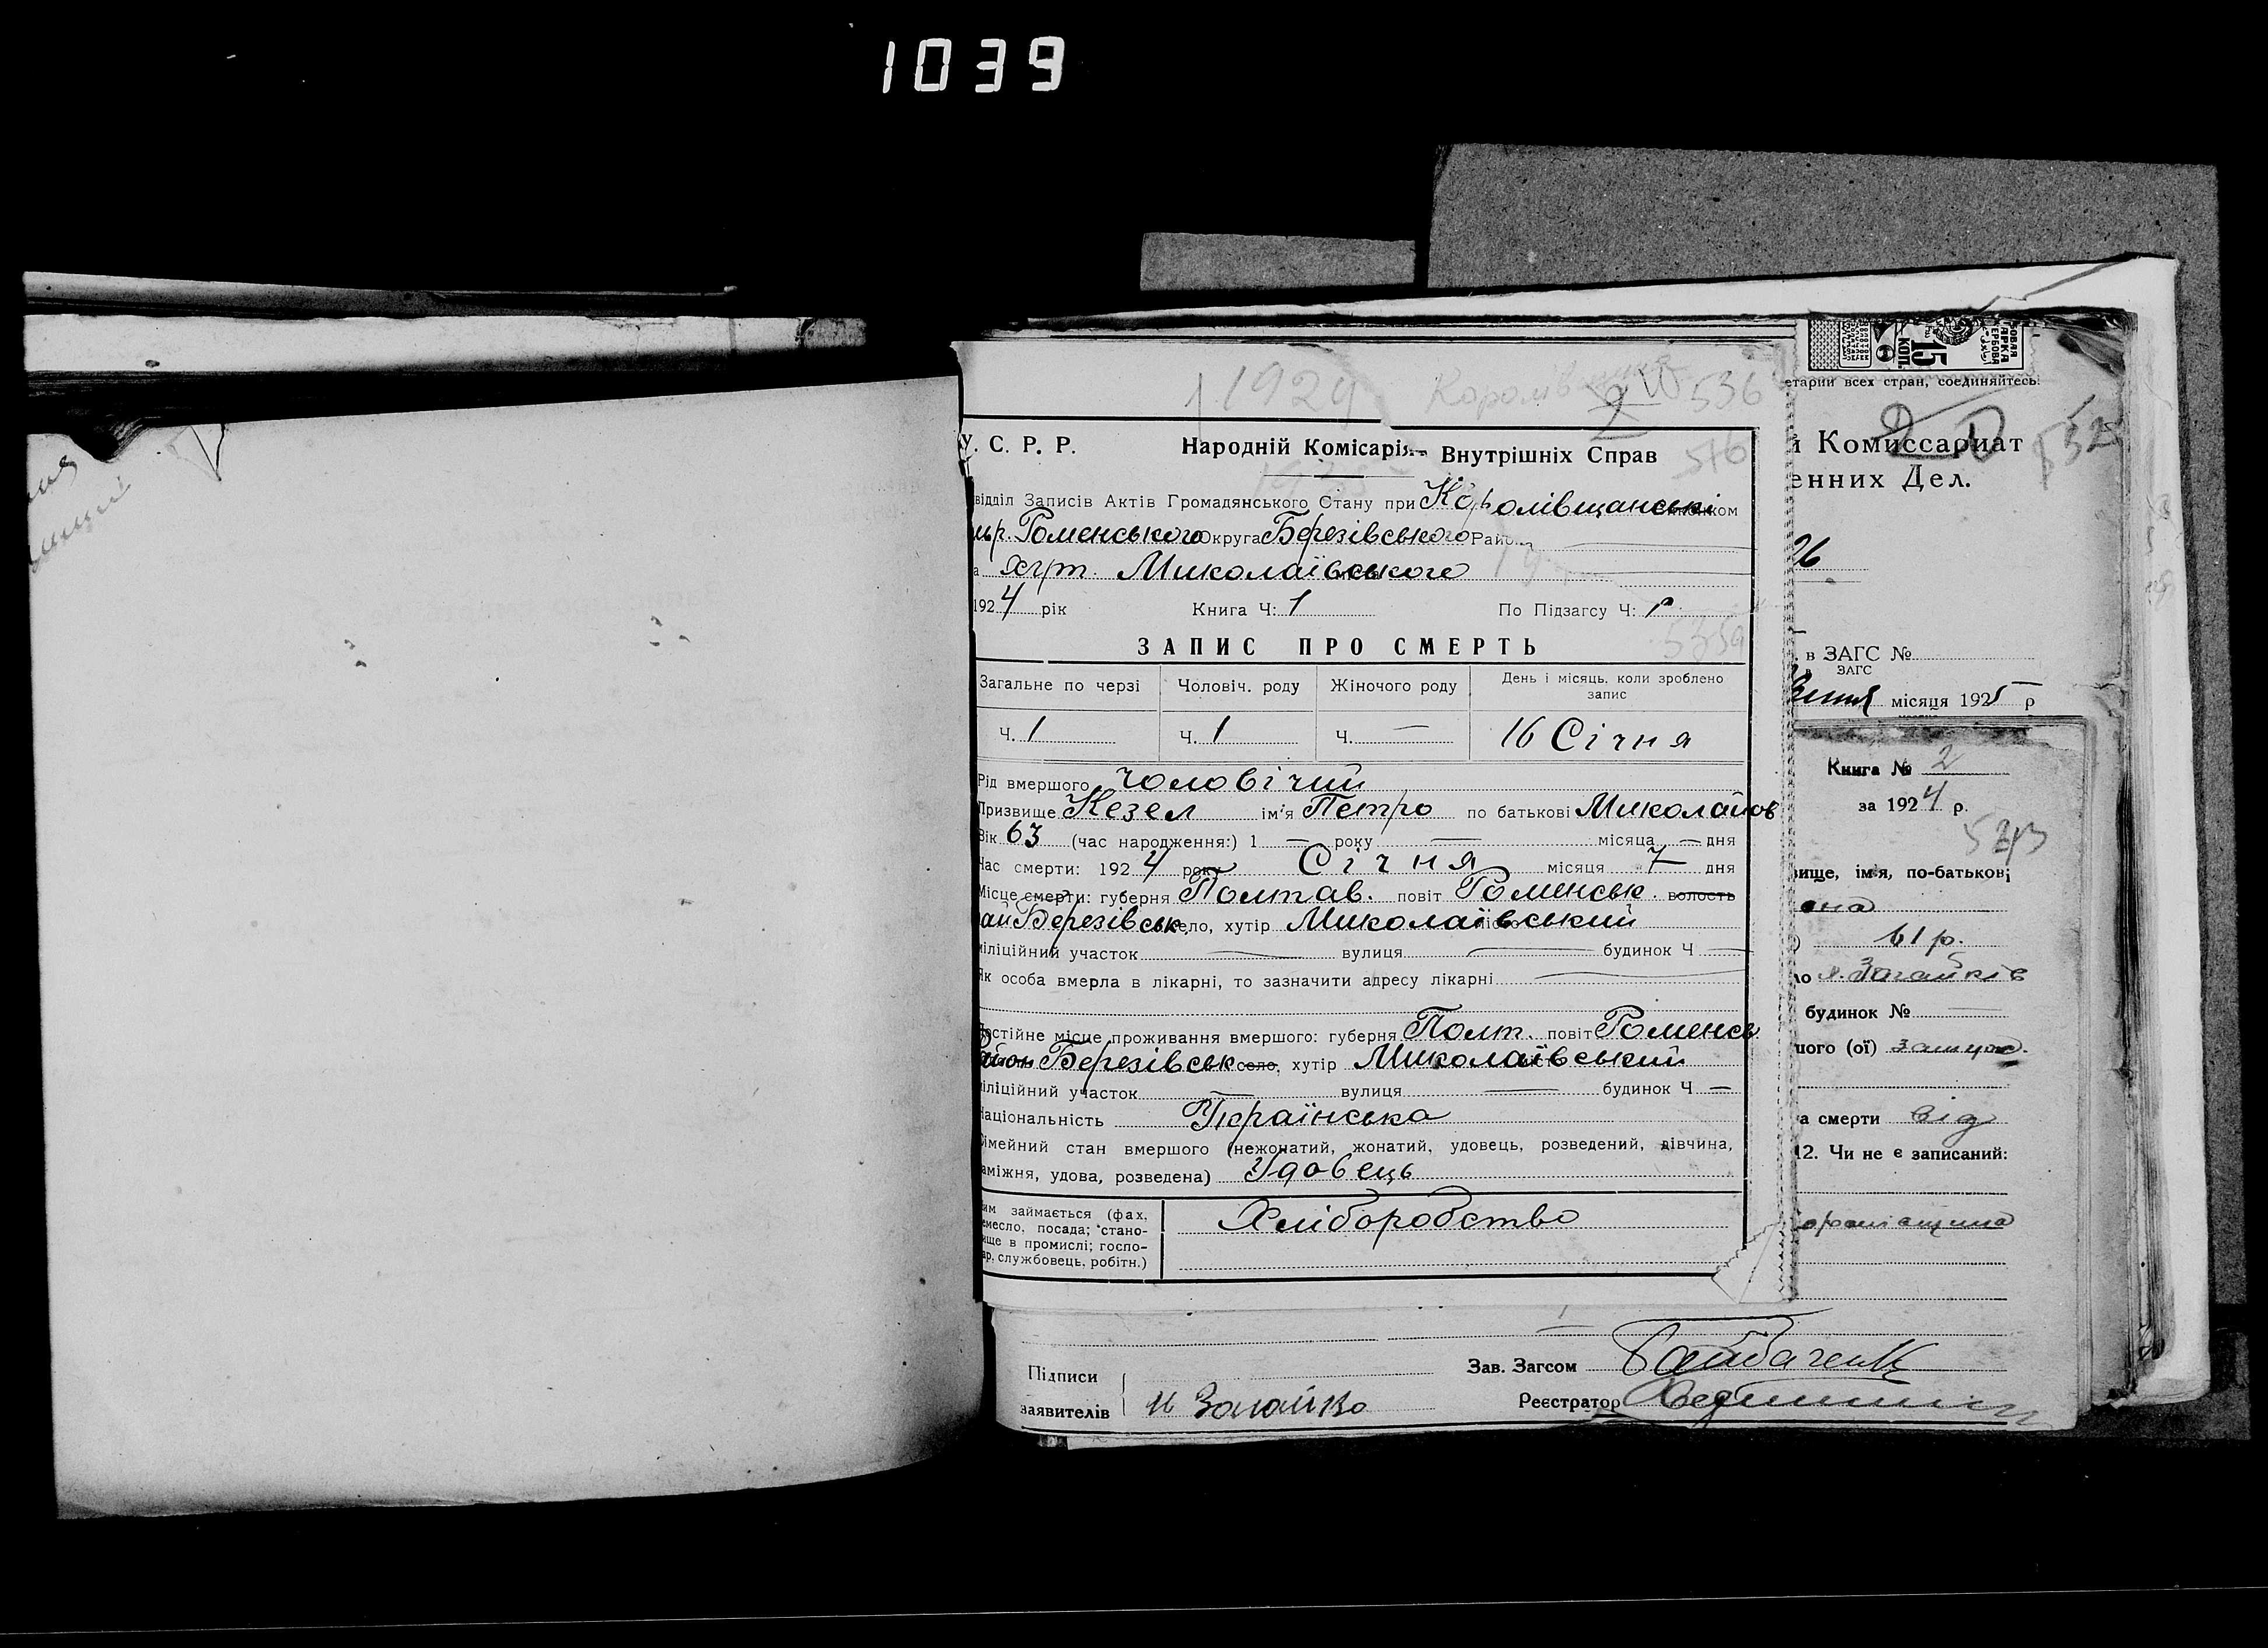 1039
1924
536
У. С. Р. Р. Народній Комісарія Внутрішніх Справ
576
відділ Записів Актів Громадянського Стану при Королівщанськім
Роменського Округа Березівського Район
Хут. Миколаївського
1924 рік Книга Ч: 1 По Підзагсу Ч:
ЗАПИС ПРО СМЕРТЬ
Загальне по черзі Чоловіч. роду Жіночого роду День і місяць, коли зроблено запис
Ч. 1 Ч. 1 Ч. — 16 Січня
Рід вмершого Чоловічий
Призвище Кезел ім'я Петро по батькові Миколайов
Вік 63 (час народження:) 1 — року — місяца — дня
Час смерти: 1924 року Січня місяця 7 дня
Місце смерти: губерня Полтав. повіт Роменськ. волость
рай Березівськ. село, хутір Миколаївський
міліційний участок — вулиця — будинок Ч —
Як особа вмерла в лікарні, то зазначити адресу лікарні
Постійне місце проживання вмершого: губерня Полт. повіт Роменсь
район Березівськ село, хутір Миколаївський
міліційний участок — вулиця — будинок Ч —
Національність Українська
Сімейний стан вмершого (нежонатий, жонатий, удовець, розведений, дівчина,
заміжня, удова, розведена) Удовець
Чим займається (фах,
ремесло, посада; стано-
вище в промислі; госпо-
дар, службовець, робітн.)
Хліборобство
Підписи
заявителів
Зав. Загсом
Реєстратор
15 КОП.
етарии всех стран, соединяйтесь.
й Комиссариат
532
енних Дел.
26
в ЗАГС №
в ЗАГС
місяця 1925 р
Книга № 2
за 1924 р.
вище, ім'я, по-батькові
61 р.
будинок №
шого (ої)
а смерти від
12. Чи не є записаний: